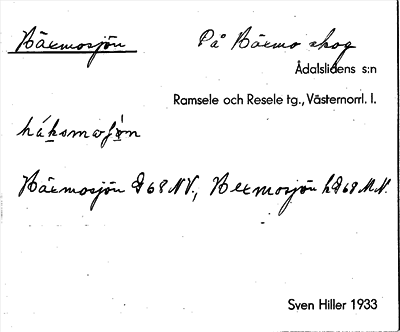 Bäxmosjön På Bäxmo skog
Ådalslidens s:n
Ramsele och Resele tg., Västernorrl. l.
Bäxmosjön 68 NV., Bexmosjön 68
Sven Hiller 1933